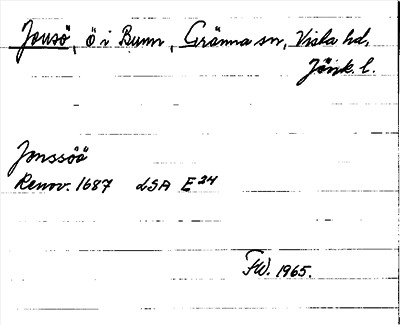 Jonsö, ö i Bunn, Gränna sn, Vista hd,
Jönk. l.
Jonssöö
Renov. 1687 LSA E 34
FW. 1965.